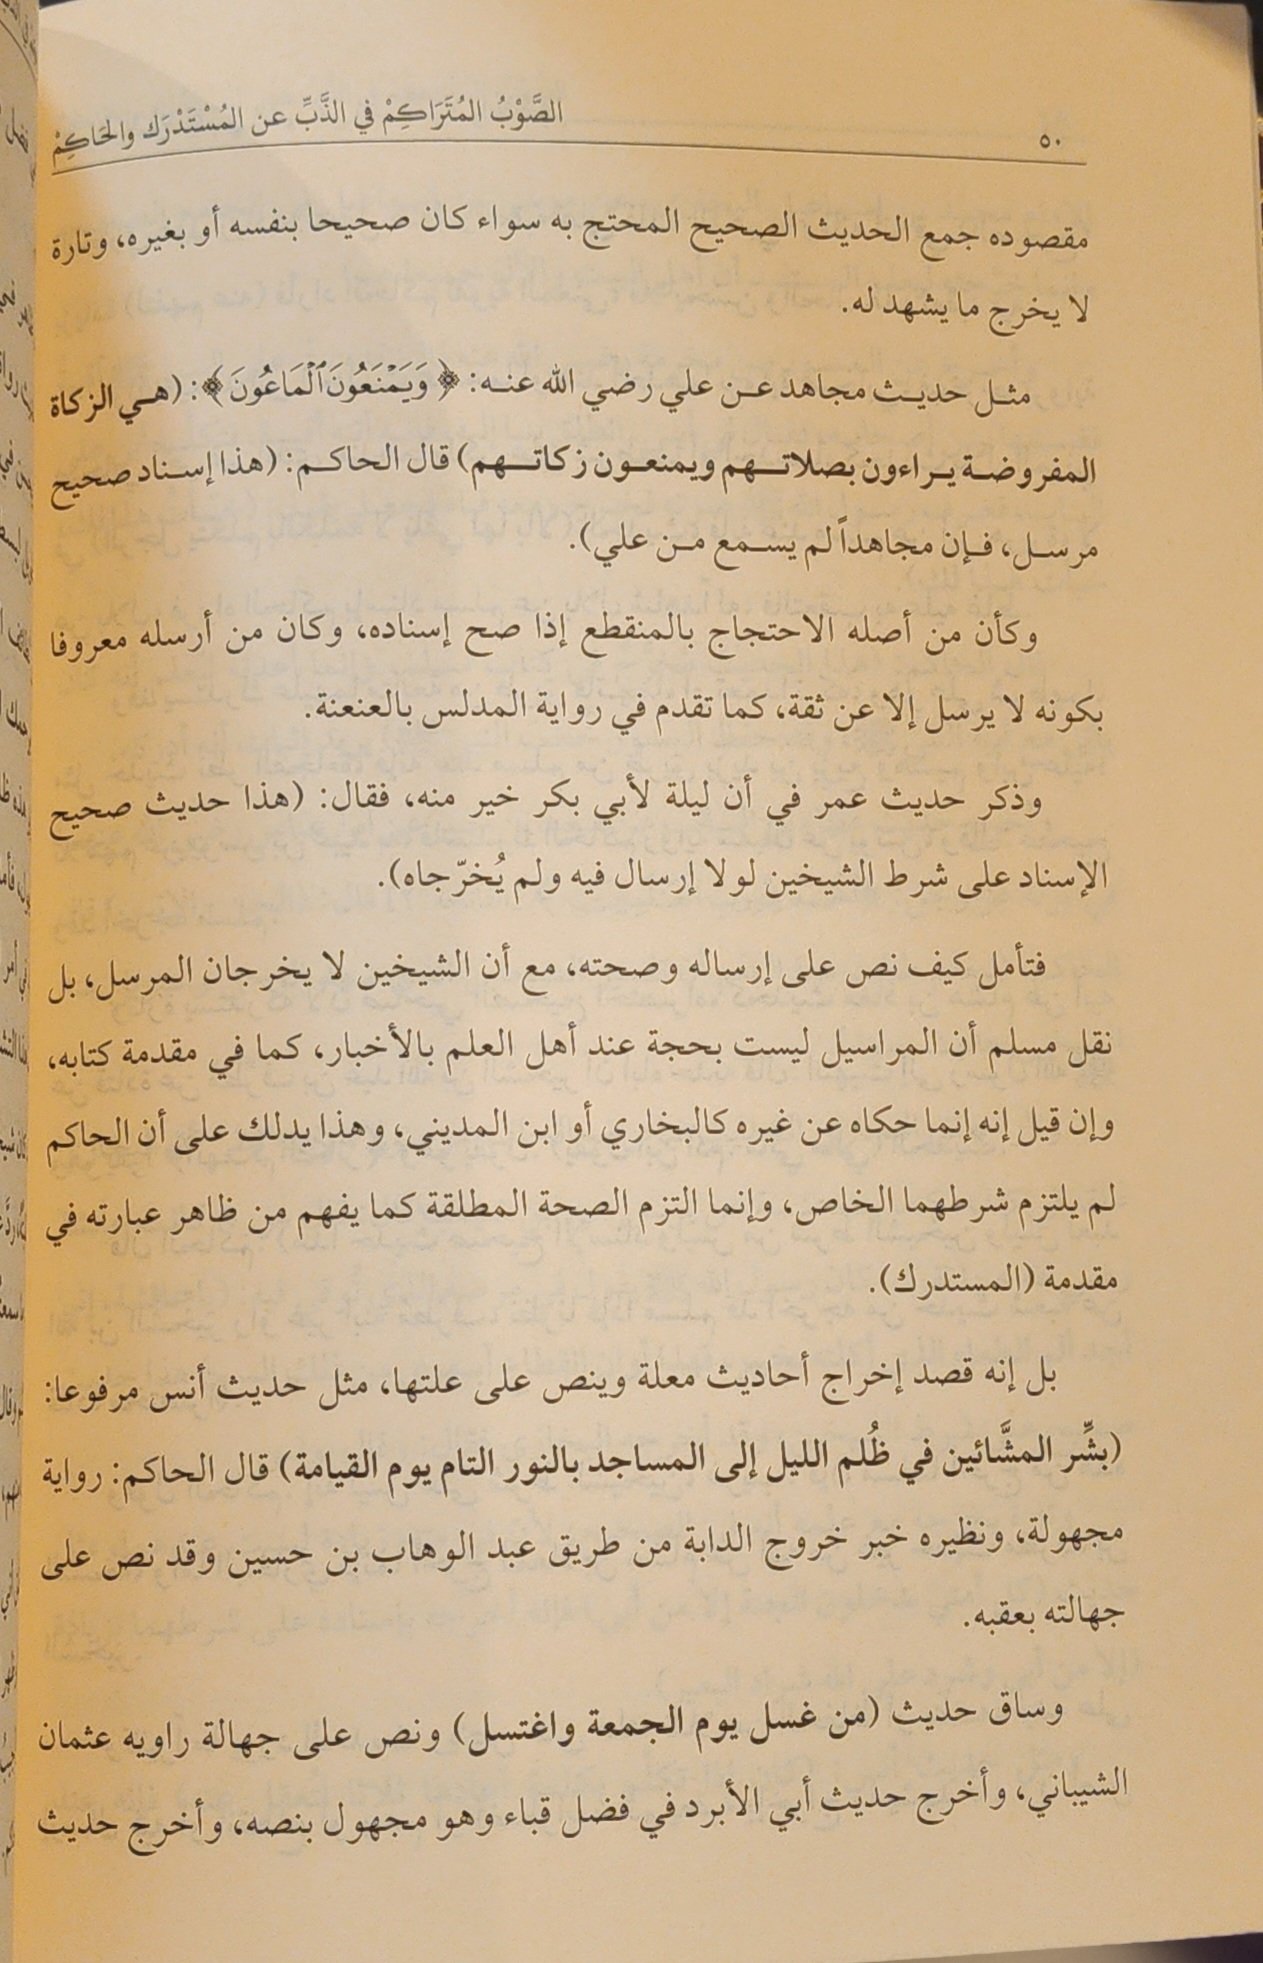 ٥٠
الصَّوْبُ المُتَرَاكِمْ في الذَّبِّ عن المُسْتَدْرَك والحَاكِمْ
مقصوده جمع الحديث الصحيح المحتج به سواء كان صحيحا بنفسه أو بغيره، وتارة
لا يخرج ما يشهد له.
مثل حديث مجاهد عن علي رضي الله عنه: ﴿وَيَمْنَعُونَ ٱلْمَاعُونَ﴾: (هي الزكاة
المفروضة يراءون بصلاتهم ويمنعون زكاتهم) قال الحاكم: (هذا إسناد صحيح
مرسل، فإن مجاهداً لم يسمع من علي).
وكأن من أصله الاحتجاج بالمنقطع إذا صح إسناده، وكان من أرسله معروفا
بكونه لا يرسل إلا عن ثقة، كما تقدم في رواية المدلس بالعنعنة.
وذكر حديث عمر في أن ليلة لأبي بكر خير منه، فقال: (هذا حديث صحيح
الإسناد على شرط الشيخين لولا إرسال فيه ولم يُخرّجاه).
فتأمل كيف نص على إرساله وصحته، مع أن الشيخين لا يخرجان المرسل، بل
نقل مسلم أن المراسيل ليست بحجة عند أهل العلم بالأخبار، كما في مقدمة كتابه،
وإن قيل إنه إنما حكاه عن غيره كالبخاري أو ابن المديني، وهذا يدلك على أن الحاكم
لم يلتزم شرطهما الخاص، وإنما التزم الصحة المطلقة كما يفهم من ظاهر عبارته في
مقدمة (المستدرك).
بل إنه قصد إخراج أحاديث معلة وينص على علتها، مثل حديث أنس مرفوعا:
(بشِّر المشَّائين في ظُلم الليل إلى المساجد بالنور التام يوم القيامة) قال الحاكم: رواية
مجهولة، ونظيره خبر خروج الدابة من طريق عبد الوهاب بن حسين وقد نص على
جهالته بعقبه.
وساق حديث (من غسل يوم الجمعة واغتسل) ونص على جهالة راويه عثمان
الشيباني، وأخرج حديث أبي الأبرد في فضل قباء وهو مجهول بنصه، وأخرج حديث